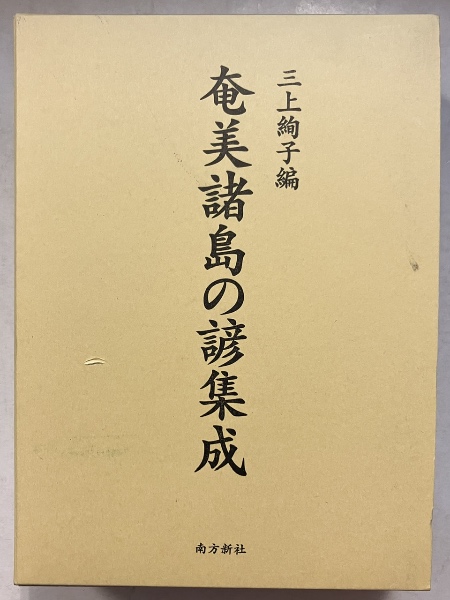 三上絢子編
奄美諸島の諺集成
南方新社